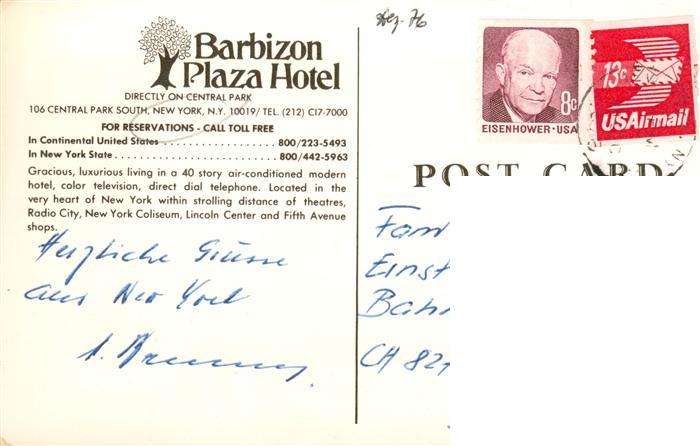 Barbizon
Plaza Hotel
DIRECTLY ON CENTRAL PARK
106 CENTRAL PARK SOUTH, NEW YORK, N.Y. 10019/ TEL. (212) CI7-7000
FOR RESERVATIONS - CALL TOLL FREE
In Continental United States . . . . . . . . . . . . . . . . . . . . . 800/223-5493
In New York State . . . . . . . . . . . . . . . . . . . . . . . . . . . . 800/442-5963
Gracious, luxurious living in a 40 story air-conditioned modern
hotel, color television, direct dial telephone. Located in the
very heart of New York within strolling distance of theatres,
Radio City, New York Coliseum, Lincoln Center and Fifth Avenue
shops.
Herzliche Grüsse
aus New York
Dez. 76
8c
EISENHOWER·USA
13c
USAirmail
POST CARD
Fam
Einst
Bahn
CH 821